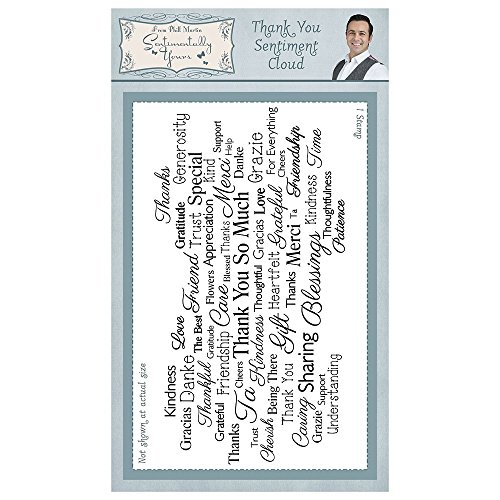 From Phill Martin
Sentimentally
Yours
Thank You
Sentiment
Cloud
Not shown at actual size
1 Stamp
Kindness
Gracias
Danke
Love
The Best
Thankful
Gratitude
Friend
Trust
Special
Thanks
Gratitude
Generosity
Flowers
Appreciation
Kind
Support
Help
Grateful
Friendship
Care
Blessed
Thanks
Merci
Danke
Thanks
Ta
Cheers
Thank You So Much
Grazie
For Everything
Trust
Kindness
Thoughtful
Gracias
Love
Cheers
Cherish
Being There
Gift
Heartfelt
Grateful
Friendship
Thank You
Thanks
Merci
Ta
Caring
Sharing
Blessings
Kindness
Time
Grazie
Support
Thoughtfulness
Understanding
Patience